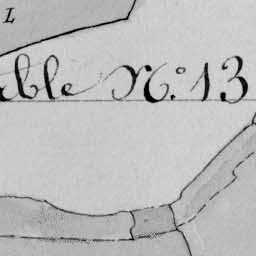 L
ble N.º 13